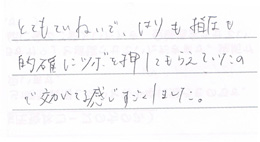 とてもていねいで、はりも指圧も
的確にツボを押してもらえているの
で効いてる感じすごくしました。